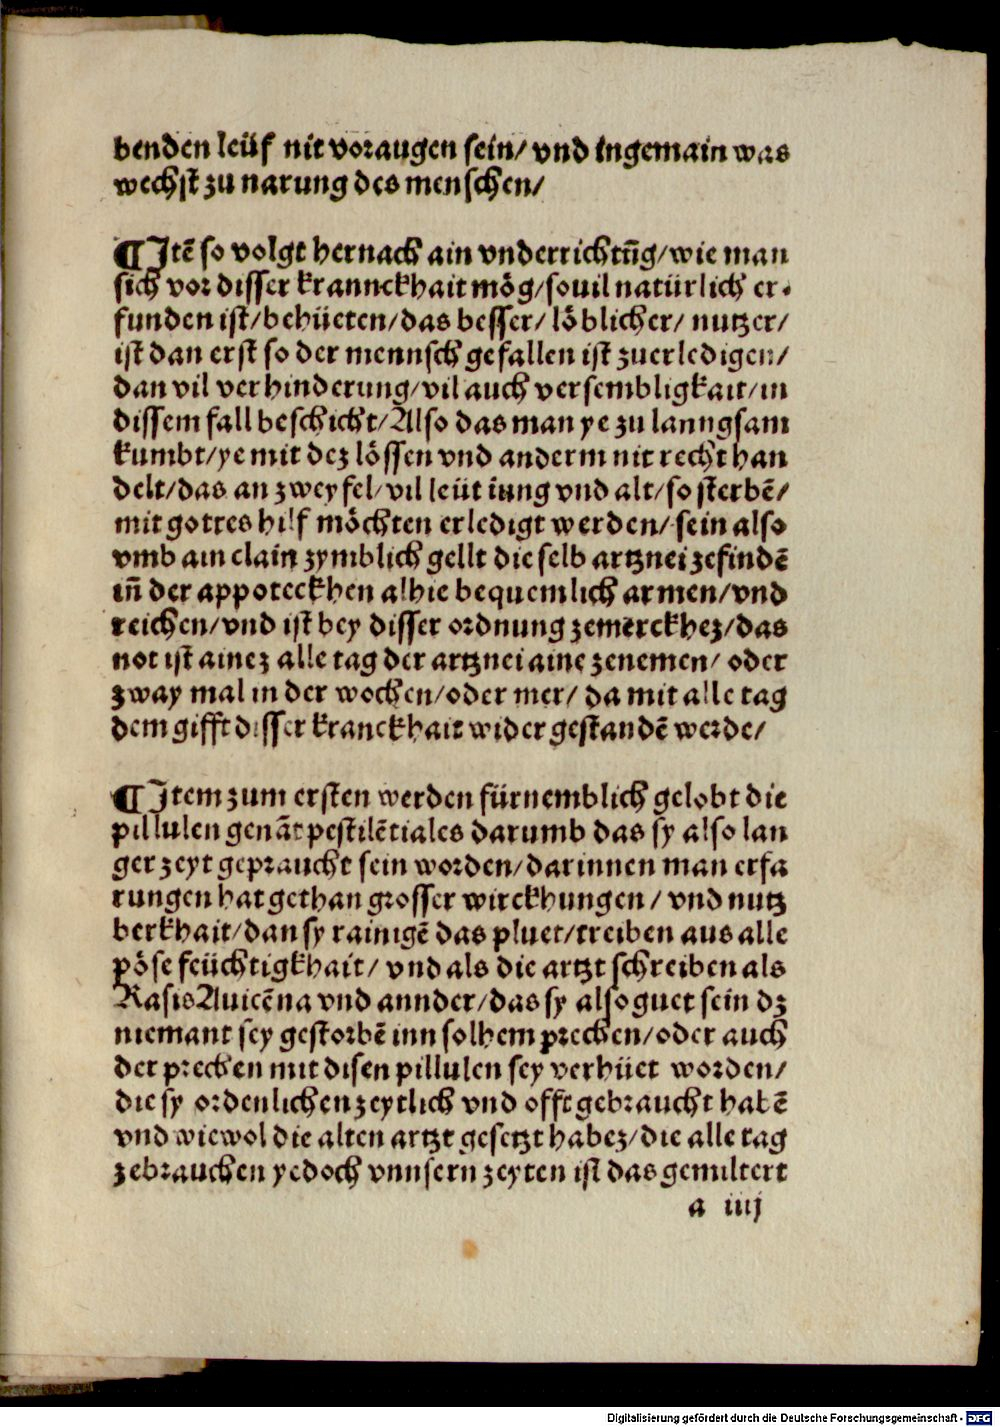 benden leüf nit vor augen sein/ vnd in gemain was
wechst zu narung des menschen/
¶ Itē so volgt hernach ain vnderrichtūg/ wie man
sich vor disser krannckhait mög/ souil natürlich er⸗
funden ist/ behüeten/ das besser/ löblicher/ nutzer/
ist dan erst so der mennsch gefallen ist zuerledigen/
dan vil verhinderung/ vil auch versembligkait/ in
dissem fall beschicht/ Also das man ye zu lanngsam
kumbt/ ye mit dez lössen vnd anderm nit recht han
delt/ das an zweyfel/ vil leüt iung vnd alt/ so sterbē/
mit gottes hilf möchten erledigt werden/ sein also
vmb ain clain zymblich gellt die selb artznei zefindē
in̄ der appoteckhen alhie bequemlich armen/ vnd
reichen/ vnd ist bey disser ordnung zemerckhez/ das
not ist ainez alle tag der artznei aine zenemen/ oder
zway mal in der wochen/ oder mer/ da mit alle tag
dem gifft disser kranckhait wider gestandē werde/
¶ Item zum ersten werden fürnemblich gelobt die
pillulen genāt pestilētiales darumb das sy also lan
ger zeyt gepraucht sein worden/ darinnen man erfa
rungen hat gethan grosser wirckhungen/ vnd nutz
berkhait/ dan sy rainigē das pluet/ treiben aus alle
pöse feüchtigkhait/ vnd als die artzt schreiben als
Rasis Auicēna vnd annder/ das sy also guet sein dz
niemant sey gestorbē inn solhem prechen/ oder auch
der prechen mit disen pillulen sey verhüet worden/
die sy ordenlichen zeytlich vnd offt gebraucht habē
vnd wiewol die alten artzt gesetzt habez/ die alle tag
zebrauchen yedoch vnnsern zeyten ist das gemiltert
a iiij
Digitalisierung gefördert durch die Deutsche Forschungsgemeinschaft - DFG